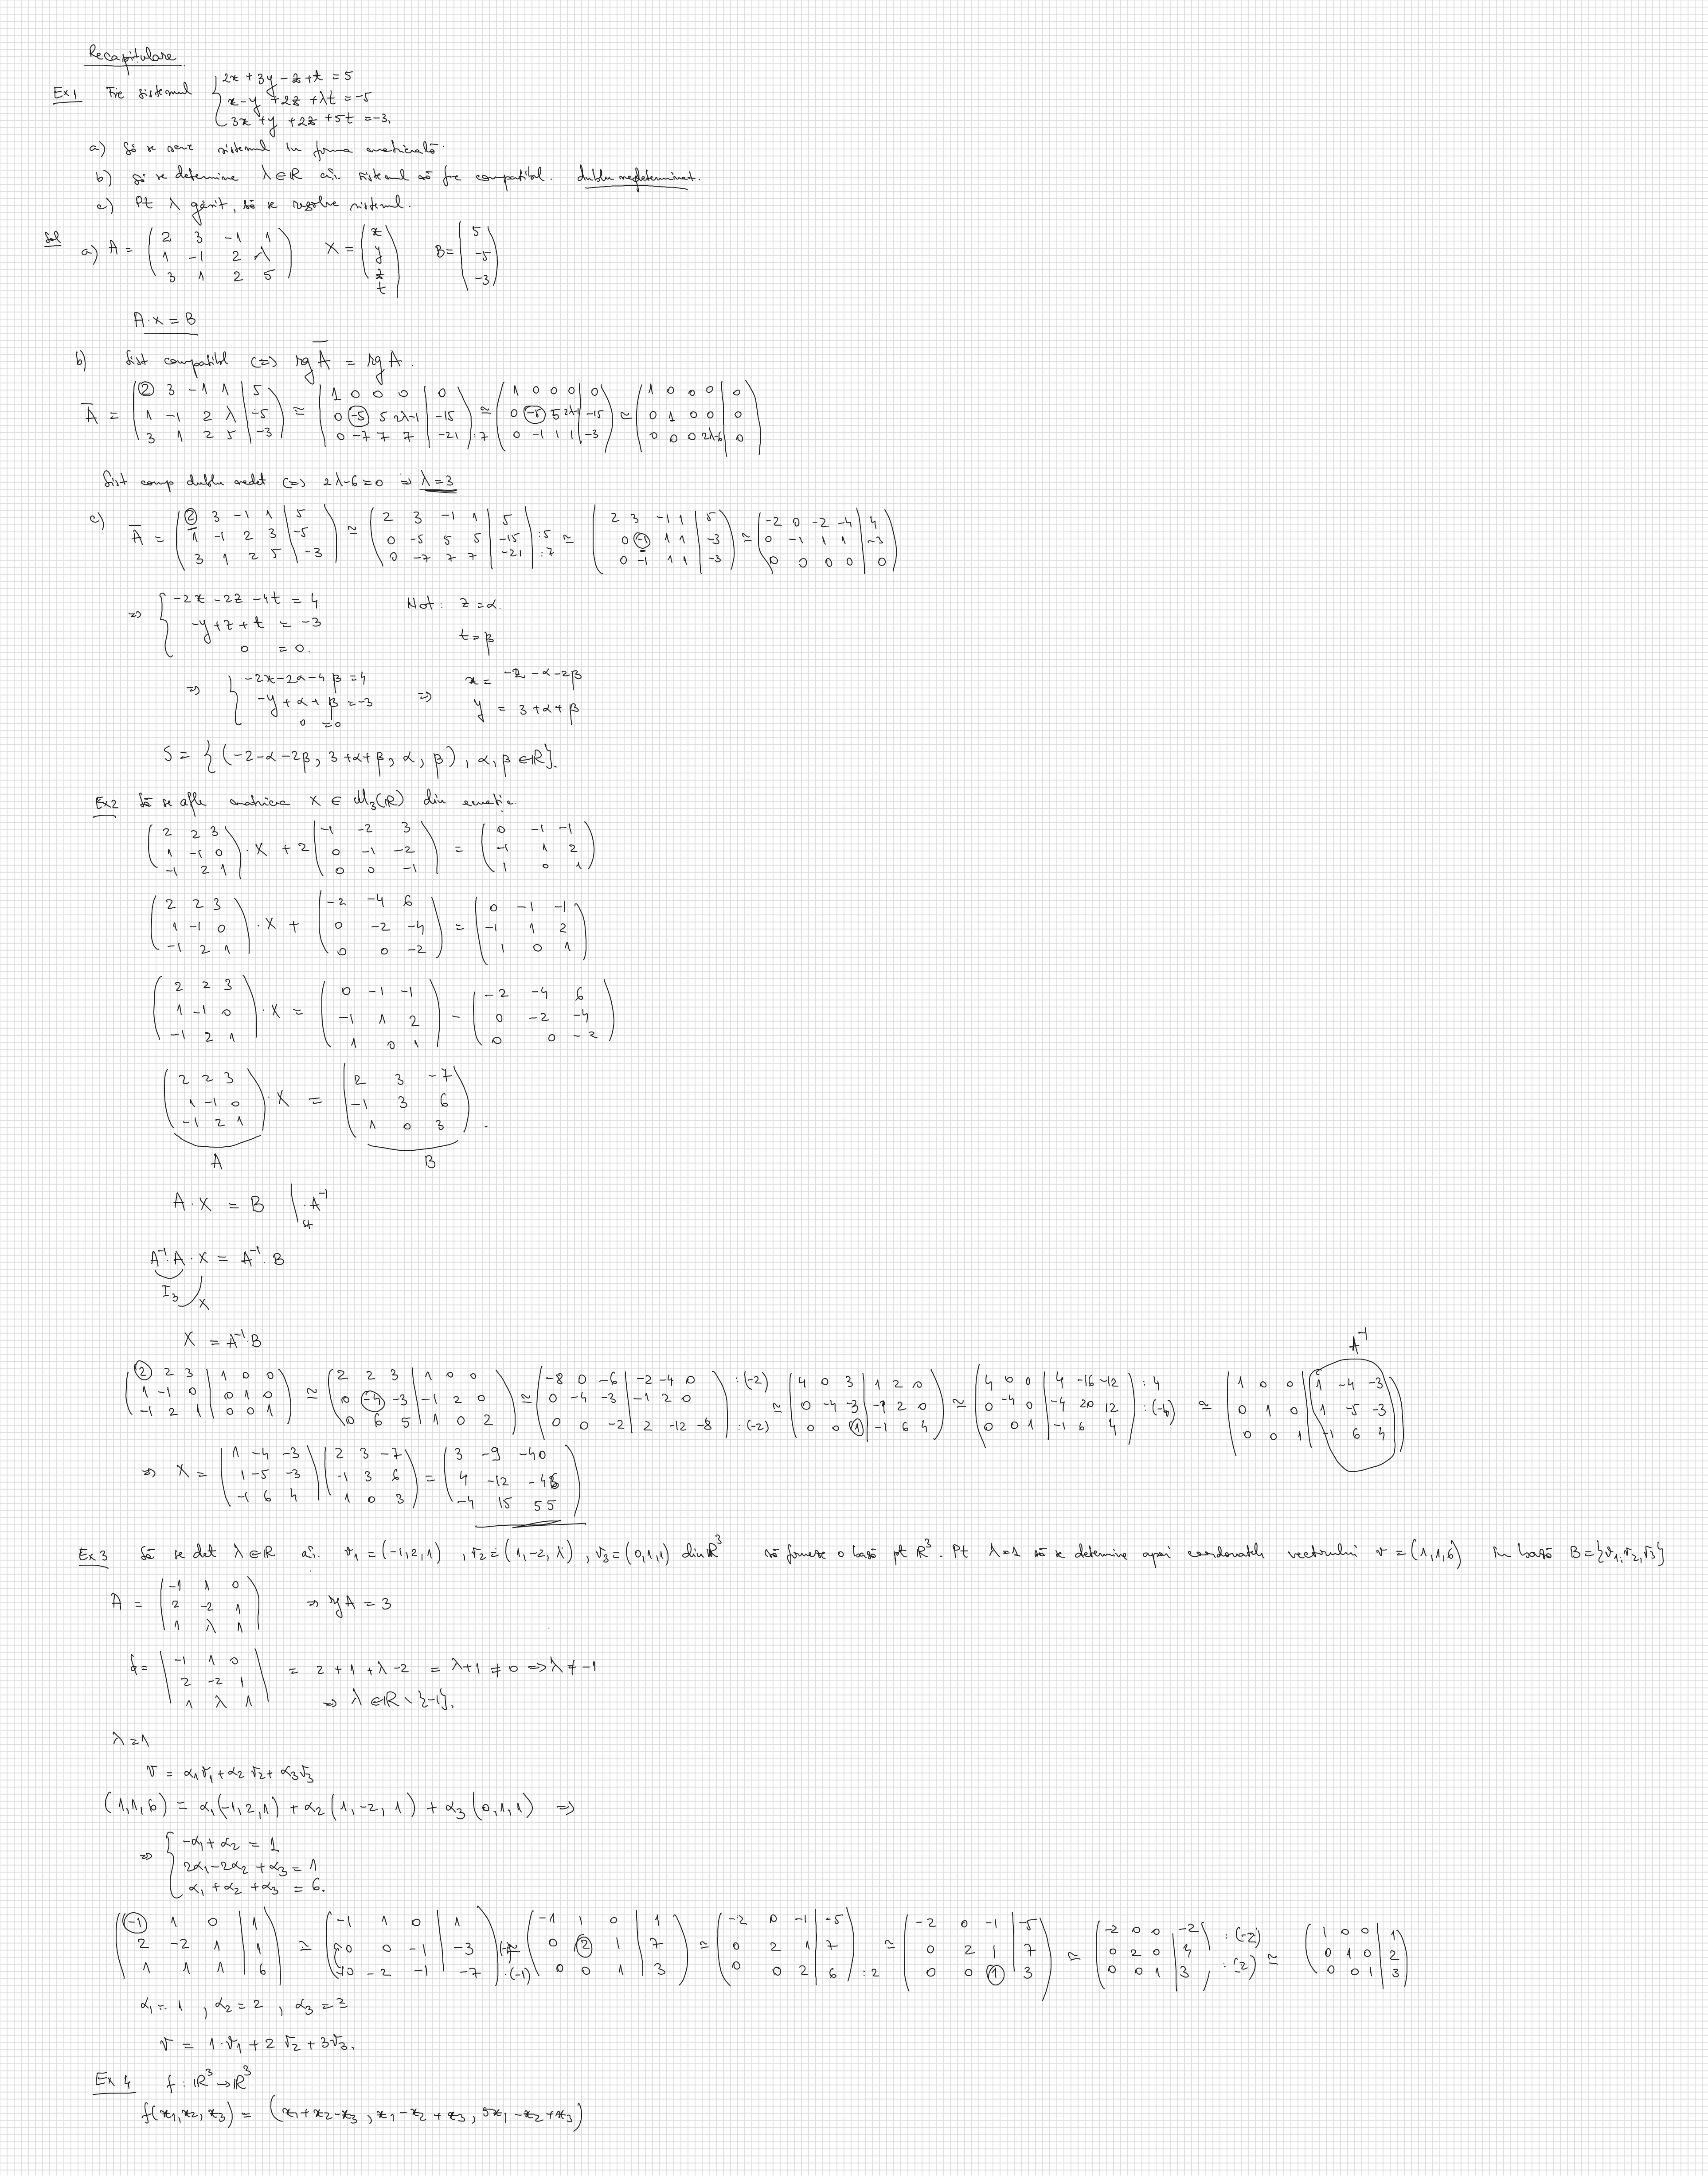 Recapitulare
Ex1 Fie sistemul { 2x + 3y - z + t = 5
x - y + 2z + λt = -5
3x + y + 2z + 5t = -3.
a) Să se scrie sistemul în forma matriceală.
b) Să se determine λ∈R a.î. sistemul să fie compatibil dublu nedeterminat.
c) Pt λ găsit, să se rezolve sistemul.
Sol a) A = ( 2 3 -1 1 ; 1 -1 2 λ ; 3 1 2 5 ) X = ( x ; y ; z ; t ) B = ( 5 ; -5 ; -3 )
A·X = B
b) Sist compatibil (=) rg Ā = rg A.
Ā = ( 2 3 -1 1 | 5 ; 1 -1 2 λ | -5 ; 3 1 2 5 | -3 ) ≃ ( 1 0 0 0 | 0 ; 0 -5 5 2λ-1 | -15 ; 0 -7 7 7 | -21 ) :7 ≃ ( 1 0 0 0 | 0 ; 0 -5 5 2λ-1 | -15 ; 0 -1 1 1 | -3 ) ≃ ( 1 0 0 0 | 0 ; 0 1 0 0 | 0 ; 0 0 0 2λ-6 | 0 )
Sist comp dublu nedet (=) 2λ-6=0 ⇒ λ=3
c) Ā = ( 2 3 -1 1 | 5 ; 1 -1 2 3 | -5 ; 3 1 2 5 | -3 ) ≃ ( 2 3 -1 1 | 5 ; 0 -5 5 5 | -15 ; 0 -7 7 7 | -21 ) :5 :7 ≃ ( 2 3 -1 1 | 5 ; 0 -1 1 1 | -3 ; 0 -1 1 1 | -3 ) ≃ ( -2 0 -2 -4 | 4 ; 0 -1 1 1 | -3 ; 0 0 0 0 | 0 )
⇒ { -2x - 2z - 4t = 4 Not: z = α.
-y + z + t = -3 t = β
0 = 0.
⇒ { -2x - 2α - 4β = 4 ⇒ x = -2 - α - 2β
-y + α + β = -3 y = 3 + α + β
0 = 0
S = { (-2-α-2β, 3+α+β, α, β), α, β ∈R}.
Ex2 Să se afle matricea X ∈ M3(R) din ecuația
( 2 2 3 ; 1 -1 0 ; -1 2 1 ) · X + 2 ( -1 -2 3 ; 0 -1 -2 ; 0 0 -1 ) = ( 0 -1 -1 ; -1 1 2 ; 1 0 1 )
( 2 2 3 ; 1 -1 0 ; -1 2 1 ) · X + ( -2 -4 6 ; 0 -2 -4 ; 0 0 -2 ) = ( 0 -1 -1 ; -1 1 2 ; 1 0 1 )
( 2 2 3 ; 1 -1 0 ; -1 2 1 ) · X = ( 0 -1 -1 ; -1 1 2 ; 1 0 1 ) - ( -2 -4 6 ; 0 -2 -4 ; 0 0 -2 )
( 2 2 3 ; 1 -1 0 ; -1 2 1 ) · X = ( 2 3 -7 ; -1 3 6 ; 1 0 3 ).
A B
A · X = B | · A⁻¹
A⁻¹·A · X = A⁻¹·B
I3 X
X = A⁻¹·B
A⁻¹
( 2 2 3 | 1 0 0 ; 1 -1 0 | 0 1 0 ; -1 2 1 | 0 0 1 ) ≃ ( 2 2 3 | 1 0 0 ; 0 -4 -3 | -1 2 0 ; 0 6 5 | 1 0 2 ) ≃ ( -8 0 -6 | -2 -4 0 ; 0 -4 -3 | -1 2 0 ; 0 0 -2 | 2 -12 -8 ) :(-2) :(-2) ≃ ( 4 0 3 | 1 2 0 ; 0 -4 -3 | -1 2 0 ; 0 0 1 | -1 6 4 ) ≃ ( 4 0 0 | 4 -16 -12 ; 0 -4 0 | -4 20 12 ; 0 0 1 | -1 6 4 ) :4 :(-4) ≃ ( 1 0 0 | 1 -4 -3 ; 0 1 0 | 1 -5 -3 ; 0 0 1 | -1 6 4 )
⇒ X = ( 1 -4 -3 ; 1 -5 -3 ; -1 6 4 ) ( 2 3 -7 ; -1 3 6 ; 1 0 3 ) = ( 3 -9 -40 ; 4 -12 -46 ; -4 15 55 )
Ex3 Să se det λ∈R a.î. v1 = (-1,2,1), v2 = (1,-2,λ), v3 = (0,1,1) din R³ să formeze o bază pt R³. Pt λ=1 să se determine apoi coordonatele vectorului v = (1,1,6) în baza B = {v1, v2, v3}
A = ( -1 1 0 ; 2 -2 1 ; 1 λ 1 ) ⇒ rg A = 3
d = | -1 1 0 ; 2 -2 1 ; 1 λ 1 | = 2 + 1 + λ - 2 = λ+1 ≠ 0 ⇒ λ ≠ -1
⇒ λ ∈R \ {-1}.
λ = 1
v = α1v1 + α2v2 + α3v3
(1,1,6) = α1(-1,2,1) + α2(1,-2,1) + α3(0,1,1) ⇒
⇒ { -α1 + α2 = 1
2α1 - 2α2 + α3 = 1
α1 + α2 + α3 = 6.
( -1 1 0 | 1 ; 2 -2 1 | 1 ; 1 1 1 | 6 ) ≃ ( -1 1 0 | 1 ; 0 0 -1 | -3 ; 0 -2 -1 | -7 ) :(-1) ≃ ( -1 1 0 | 1 ; 0 2 1 | 7 ; 0 0 1 | 3 ) ≃ ( -2 0 -1 | -5 ; 0 2 1 | 7 ; 0 0 2 | 6 ) :2 ≃ ( -2 0 -1 | -5 ; 0 2 1 | 7 ; 0 0 1 | 3 ) ≃ ( -2 0 0 | -2 ; 0 2 0 | 4 ; 0 0 1 | 3 ) :(-2) :(2) ≃ ( 1 0 0 | 1 ; 0 1 0 | 2 ; 0 0 1 | 3 )
α1 = 1, α2 = 2, α3 = 3
v = 1·v1 + 2v2 + 3v3.
Ex 4 f : R³→R³
f(x1,x2,x3) = (x1+x2-x3, x1-x2+x3, 5x1-x2+x3)